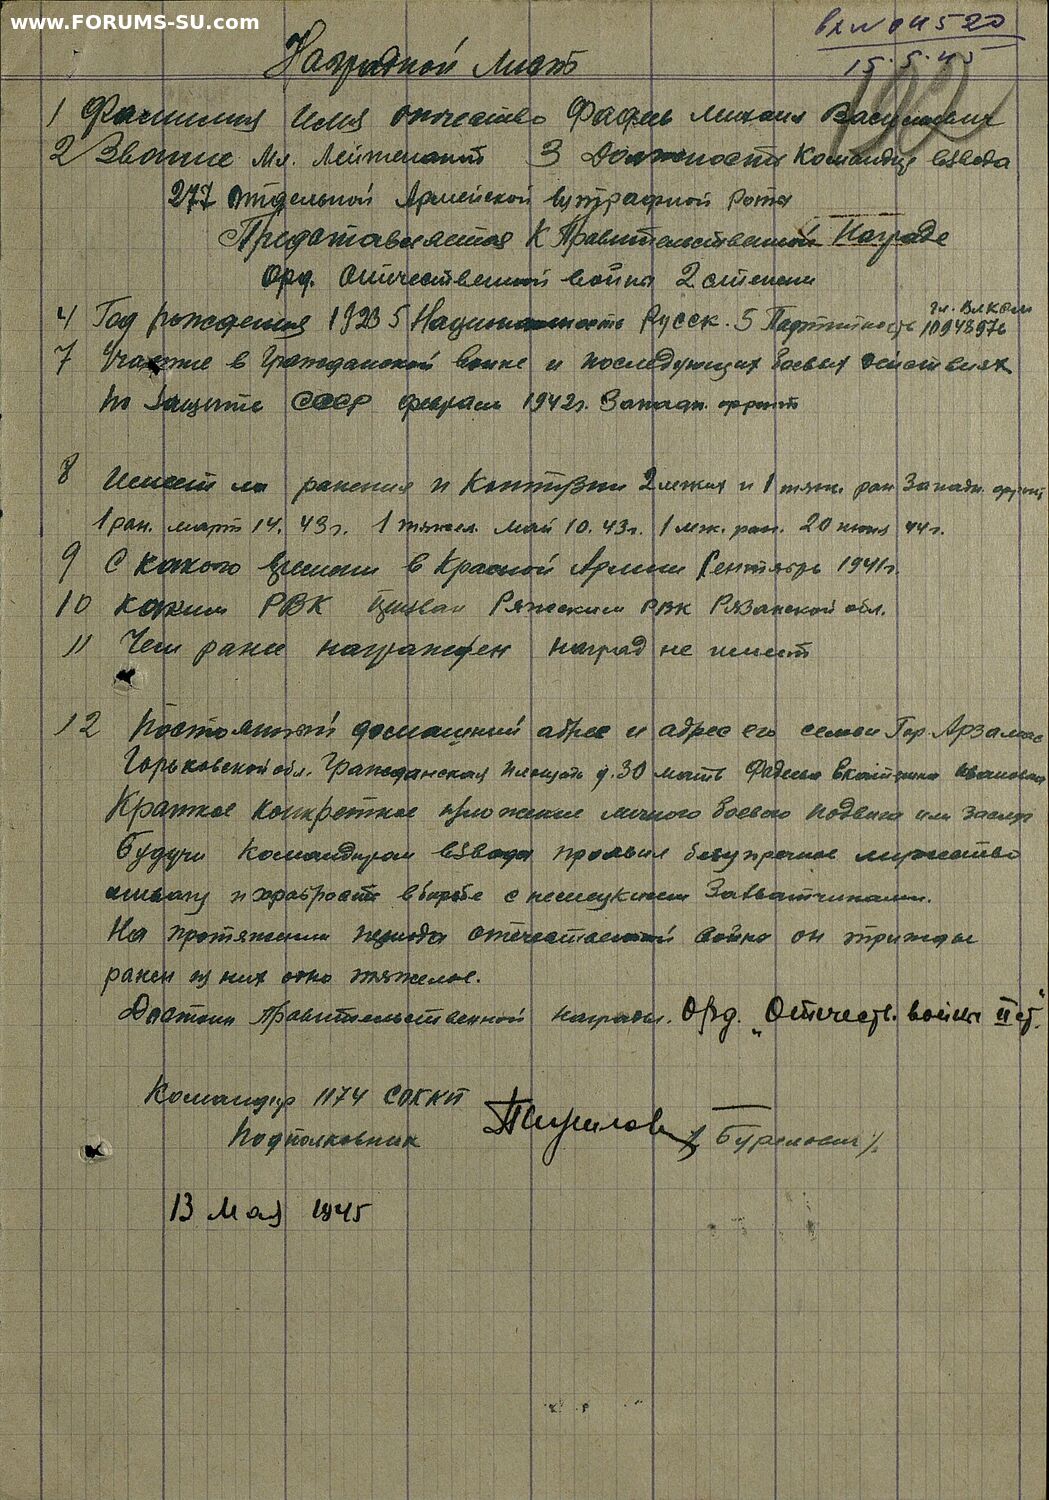 www.FORUMS-SU.com
вх N 04520
15.5.45
192
Наградной лист
1 Фамилия Имя отчество Фадеев Михаил Васильевич
2 Звание Мл. Лейтенант 3 Должность Командир взвода
277 отдельной Армейской штрафной роты
Представляется к Правительственной Награде
Орд. Отечественной войны 2 степени
чл. ВЛКСМ
4 Год рождения 1923 5 Национальность Русск. 5 Партийность
7 Участие в Гражданской войне и последующих боевых действиях
по защите СССР февраль 1942г. Западн. фронт
8 Имеет ли ранения и контузии 2 легких и 1 тяж. ран Западн. фронт
1 ран. март 14. 43г. 1 тяжел. май 10. 43г. 1 лж. ран. 20 июня 44г.
9 С какого времени в Красной Армии Сентябрь 1941г.
10 каким РВК призван Ряжским РВК Рязанской обл.
11 Чем ранее награжден наград не имеет
12 Постоянный домашний адрес и адрес его семьи Гор. Арзамас
Горьковской обл. Гражданская площадь д. 30 мать Фадеева Екатерина Ивановна
Краткое конкретное изложение личного боевого подвига или заслуг
Будучи командиром взвода проявил безупречное мужество
отвагу и храбрость в борьбе с немецкими Захватчиками.
На протяжении периода отечественной войны он трижды
ранен из них одно тяжелое.
Достоин Правительственной награды. Орд. „Отечеств. войны II ст."
Командир 1174
Подполковник
13 Мая 1945